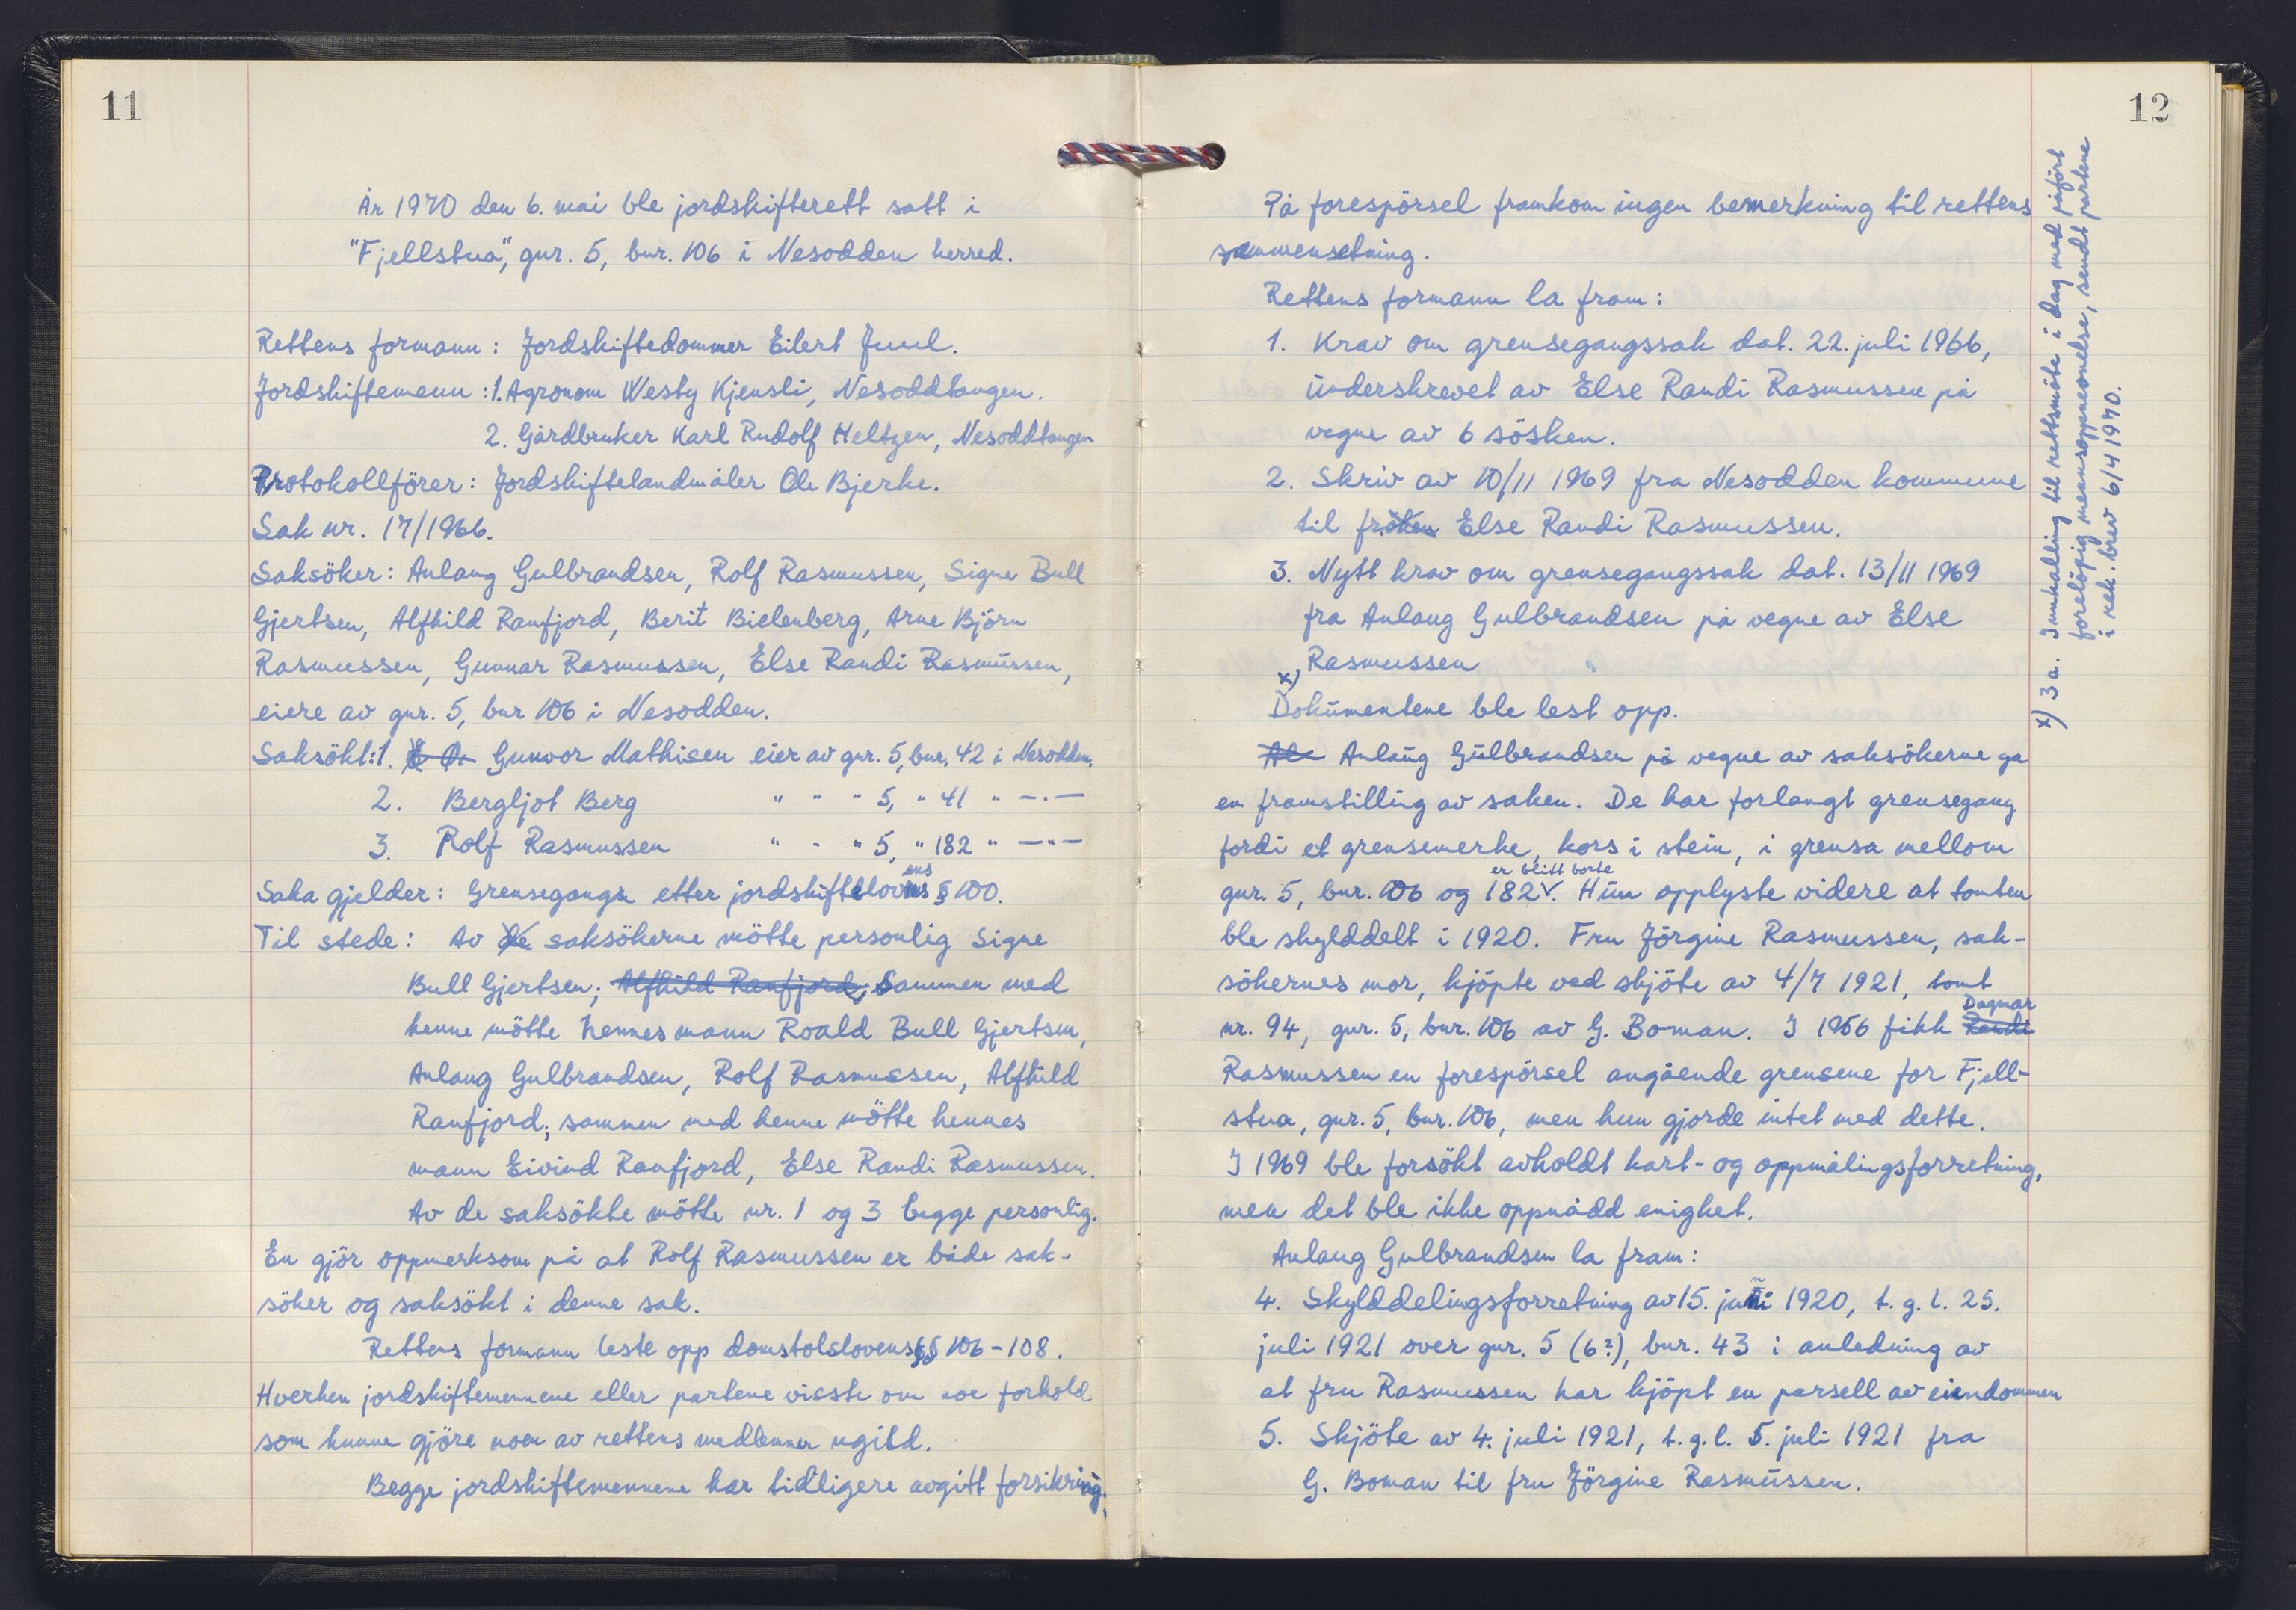 11
År 1970 den 6. mai ble jordskifterett satt i
"Fjellstua", gnr. 5, bnr. 106 i Nesodden herred.
Rettens formann: Jordskiftedommer Eilert Juul.
Jordskiftemenn: 1. Agronom Westy Kjensli, Nesoddtangen.
2. Gårdbruker Karl Rudolf Heltzen, Nesoddtangen
Protokollförer: Jordskiftelandmåler Ole Bjerke.
Sak nr. 17/1966.
Saksöker: Anlaug Gulbrandsen, Rolf Rasmussen, Signe Bull
Gjertsen, Alfhild Ranfjord, Berit Bielenberg, Arne Björn
Rasmussen, Gunnar Rasmussen, Else Randi Rasmussen,
eiere av gnr. 5, bnr 106 i Nesodden.
Saksökt: 1. Gunvor Mathisen eier av gnr. 5, bnr. 42 i Nesodden.
2. Bergljot Berg " " " 5, " 41 " —"—
3. Rolf Rasmussen " " " 5, " 182 " —"—
Saka gjelder: Grensegang etter jordskiftelovens § 100.
Til stede: Av de saksökerne mötte personlig Signe
Bull Gjertsen; Alfhild Ranfjord; Sammen med
henne mötte hennes mann Roald Bull Gjertsen,
Anlaug Gulbrandsen, Rolf Rasmussen, Alfhild
Ranfjord; sammen med henne mötte hennes
mann Eivind Ranfjord, Else Randi Rasmussen.
Av de saksökte mötte nr. 1 og 3 begge personlig.
En gjör oppmerksom på at Rolf Rasmussen er både sak-
söker og saksökt i denne sak.
Rettens formann leste opp domstolslovens §§ 106-108.
Hverken jordskiftemennene eller partene visste om noe forhold
som kunne gjöre noen av rettens medlemmer ugild.
Begge jordskiftemennene har tidligere avgitt forsikring.
12
På forespörsel framkom ingen bemerkning til rettens
sammensetning.
Rettens formann la fram:
1. Krav om grensegangssak dat. 22. juli 1966,
underskrevet av Else Randi Rasmussen på
vegne av 6 sösken.
2. Skriv av 10/11 1969 fra Nesodden kommune
til fröken Else Randi Rasmussen.
3. Nytt krav om grensegangssak dat. 13/11 1969
fra Anlaug Gulbrandsen på vegne av Else
Rasmussen
x)
Dokumentene ble lest opp.
Anlaug Gulbrandsen på vegne av saksökerne ga
en framstilling av saken. De har forlangt grensegang
fordi et grensemerke, kors i stein, i grensa mellom
er blitt borte
gnr. 5, bnr. 106 og 182 v. Hun opplyste videre at tomten
ble skylddelt i 1920. Fru Jörgine Rasmussen, sak-
sökernes mor, kjöpte ved skjöte av 4/7 1921, tomt
Dagmar
nr. 94, gnr. 5, bnr. 106 av G. Boman. I 1956 fikk Randi
Rasmussen en forespörsel angående grensene for Fjell-
stua, gnr. 5, bnr. 106, men hun gjorde intet med dette.
I 1969 ble forsökt avholdt kart- og oppmålingsforretning,
men det ble ikke oppnådd enighet.
Anlaug Gulbrandsen la fram:
4. Skylddelingsforretning av 15. juni 1920, t.g.l. 25.
juli 1921 over gnr. 5 (6?), bnr. 43 i anledning av
at fru Rasmussen har kjöpt en parsell av eiendommen
5. Skjöte av 4. juli 1921, t.g.l. 5. juli 1921 fra
G. Boman til fru Jörgine Rasmussen.
x) 3a. Innkalling til rettsmöte i dag med påfört
forelöpig mennsoppnevnelse, sendt partene
i rek. brev 6/4 1970.